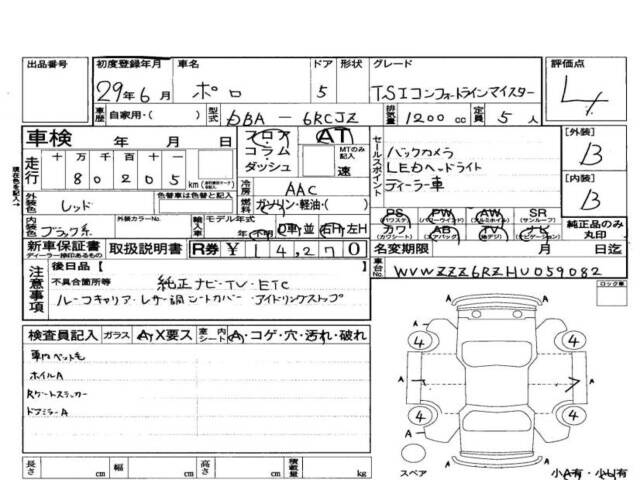 出品番号 初度登録年月 車名 ドア 形状 グレード 評価点
29年6月 ポロ 5 TSIコンフォートラインマイスター 4
車歴 自家用・( ) 型式 DBA-6RCJZ 排気量 1200cc 定員 5人
車検 年 月 日 フロア AT
コラム MTのみ記入
ダッシュ 速
走行 十万 万 千 百 十 一
8 0 2 0 5 km
冷房 AAC
燃料 ガソリン・軽油・( )
セールスポイント
バックカメラ
LEDヘッドライト
ディーラー車
[外装]
B
[内装]
B
外装色 レッド 色替車は色替と記入
現在色を記入→
内装色 ブラック系 外装カラーNo. 輸入車 モデル年式 年(不明) D車・並 右H・左H
PS (パワステ) PW (パワーウインド) AW (アルミホイル) SR (サンルーフ)
カワ (カワシート) AB (エアバック) TV (地デジ) ナビ (ナビゲーション)
純正品のみ丸印
新車保証書 ディーラー捺印あるもの 取扱説明書 R券 ¥14,270 名変期限 月 日迄
車台No. WVWZZZ6RZHU059082
注意事項
後日品[ ]
不具合箇所等 純正ナビ・TV・ETC
ルーフキャリア・レザー調シートカバー・アイドリングストップ
ロック車
検査員記入 ガラス A,Y X要ス 室内シート A・コゲ・穴・汚れ・破れ
車内ペット毛
ホイルA
Rゲートステッカー
ドアミラーA
A
4 4
A A
4 4
A
スペア
小A有・小U有
長さ cm 幅 cm 高さ cm 積載量 kg